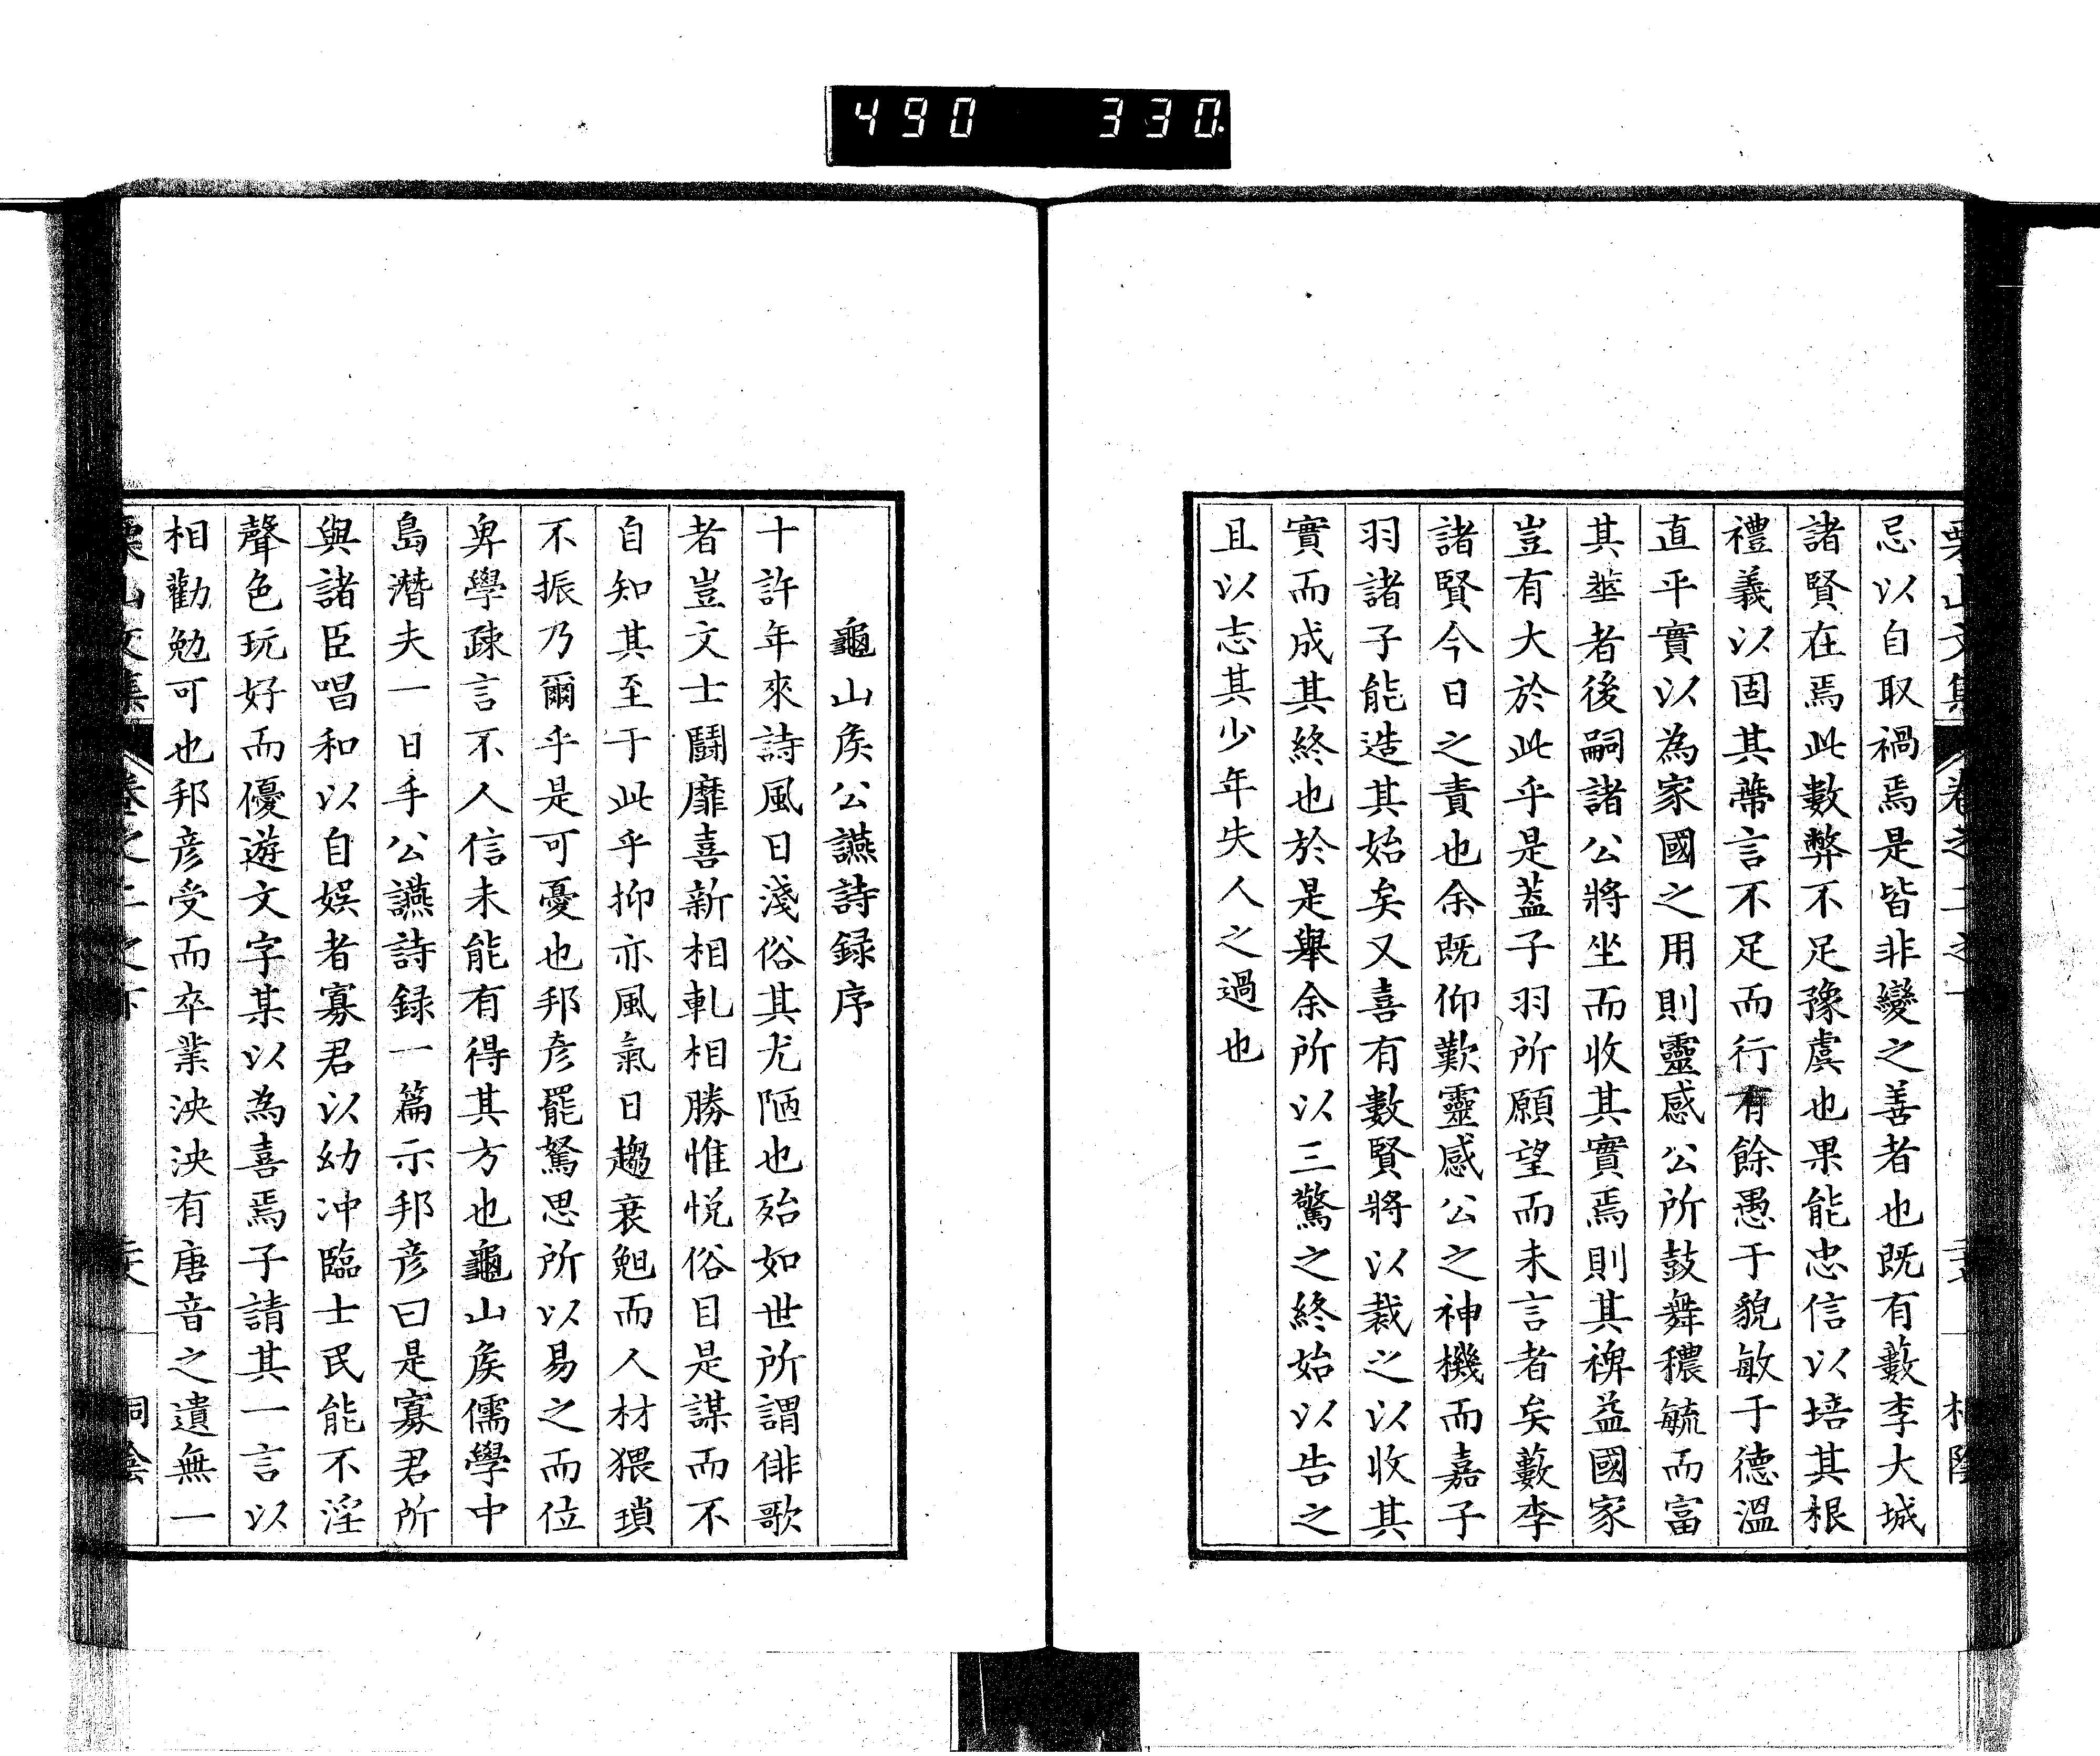 490 330.
忌以自取禍焉是皆非變之善者也既有藪李大城
諸賢在焉此數弊不足豫虞也果能忠信以培其根
禮義以固其蔕言不足而行有餘愚于貌敏于德溫
直平實以為家國之用則靈感公所鼓舞穠毓而富
其蕐者後嗣諸公將坐而收其實焉則其裨益國家
豈有大於此乎是蓋子羽所願望而未言者矣藪李
諸賢今日之責也余既仰歎靈感公之神機而嘉子
羽諸子能造其始矣又喜有數賢將以裁之以收其
實而成其終也於是舉余所以三驚之終始以告之
且以志其少年失人之過也
龜山矦公讌詩録序
十許年來詩風日淺俗其尤陋也殆如世所謂俳歌
者豈文士鬪靡喜新相軋相勝惟悅俗目是謀而不
自知其至于此乎抑亦風氣日趨衰䰟而人材猥瑣
不振乃爾乎是可憂也邦彦罷駑思所以易之而位
卑學疎言不人信未能有得其方也龜山矦儒學中
島潛夫一日手公讌詩録一篇示邦彦曰是寡君所
與諸臣唱和以自娯者寡君以幼冲臨士民能不淫
聲色玩好而優遊文字某以為喜焉子請其一言以
相勸勉可也邦彦受而卒業泱泱有唐音之遺無一
栗山文集 卷之二之下 桐陰